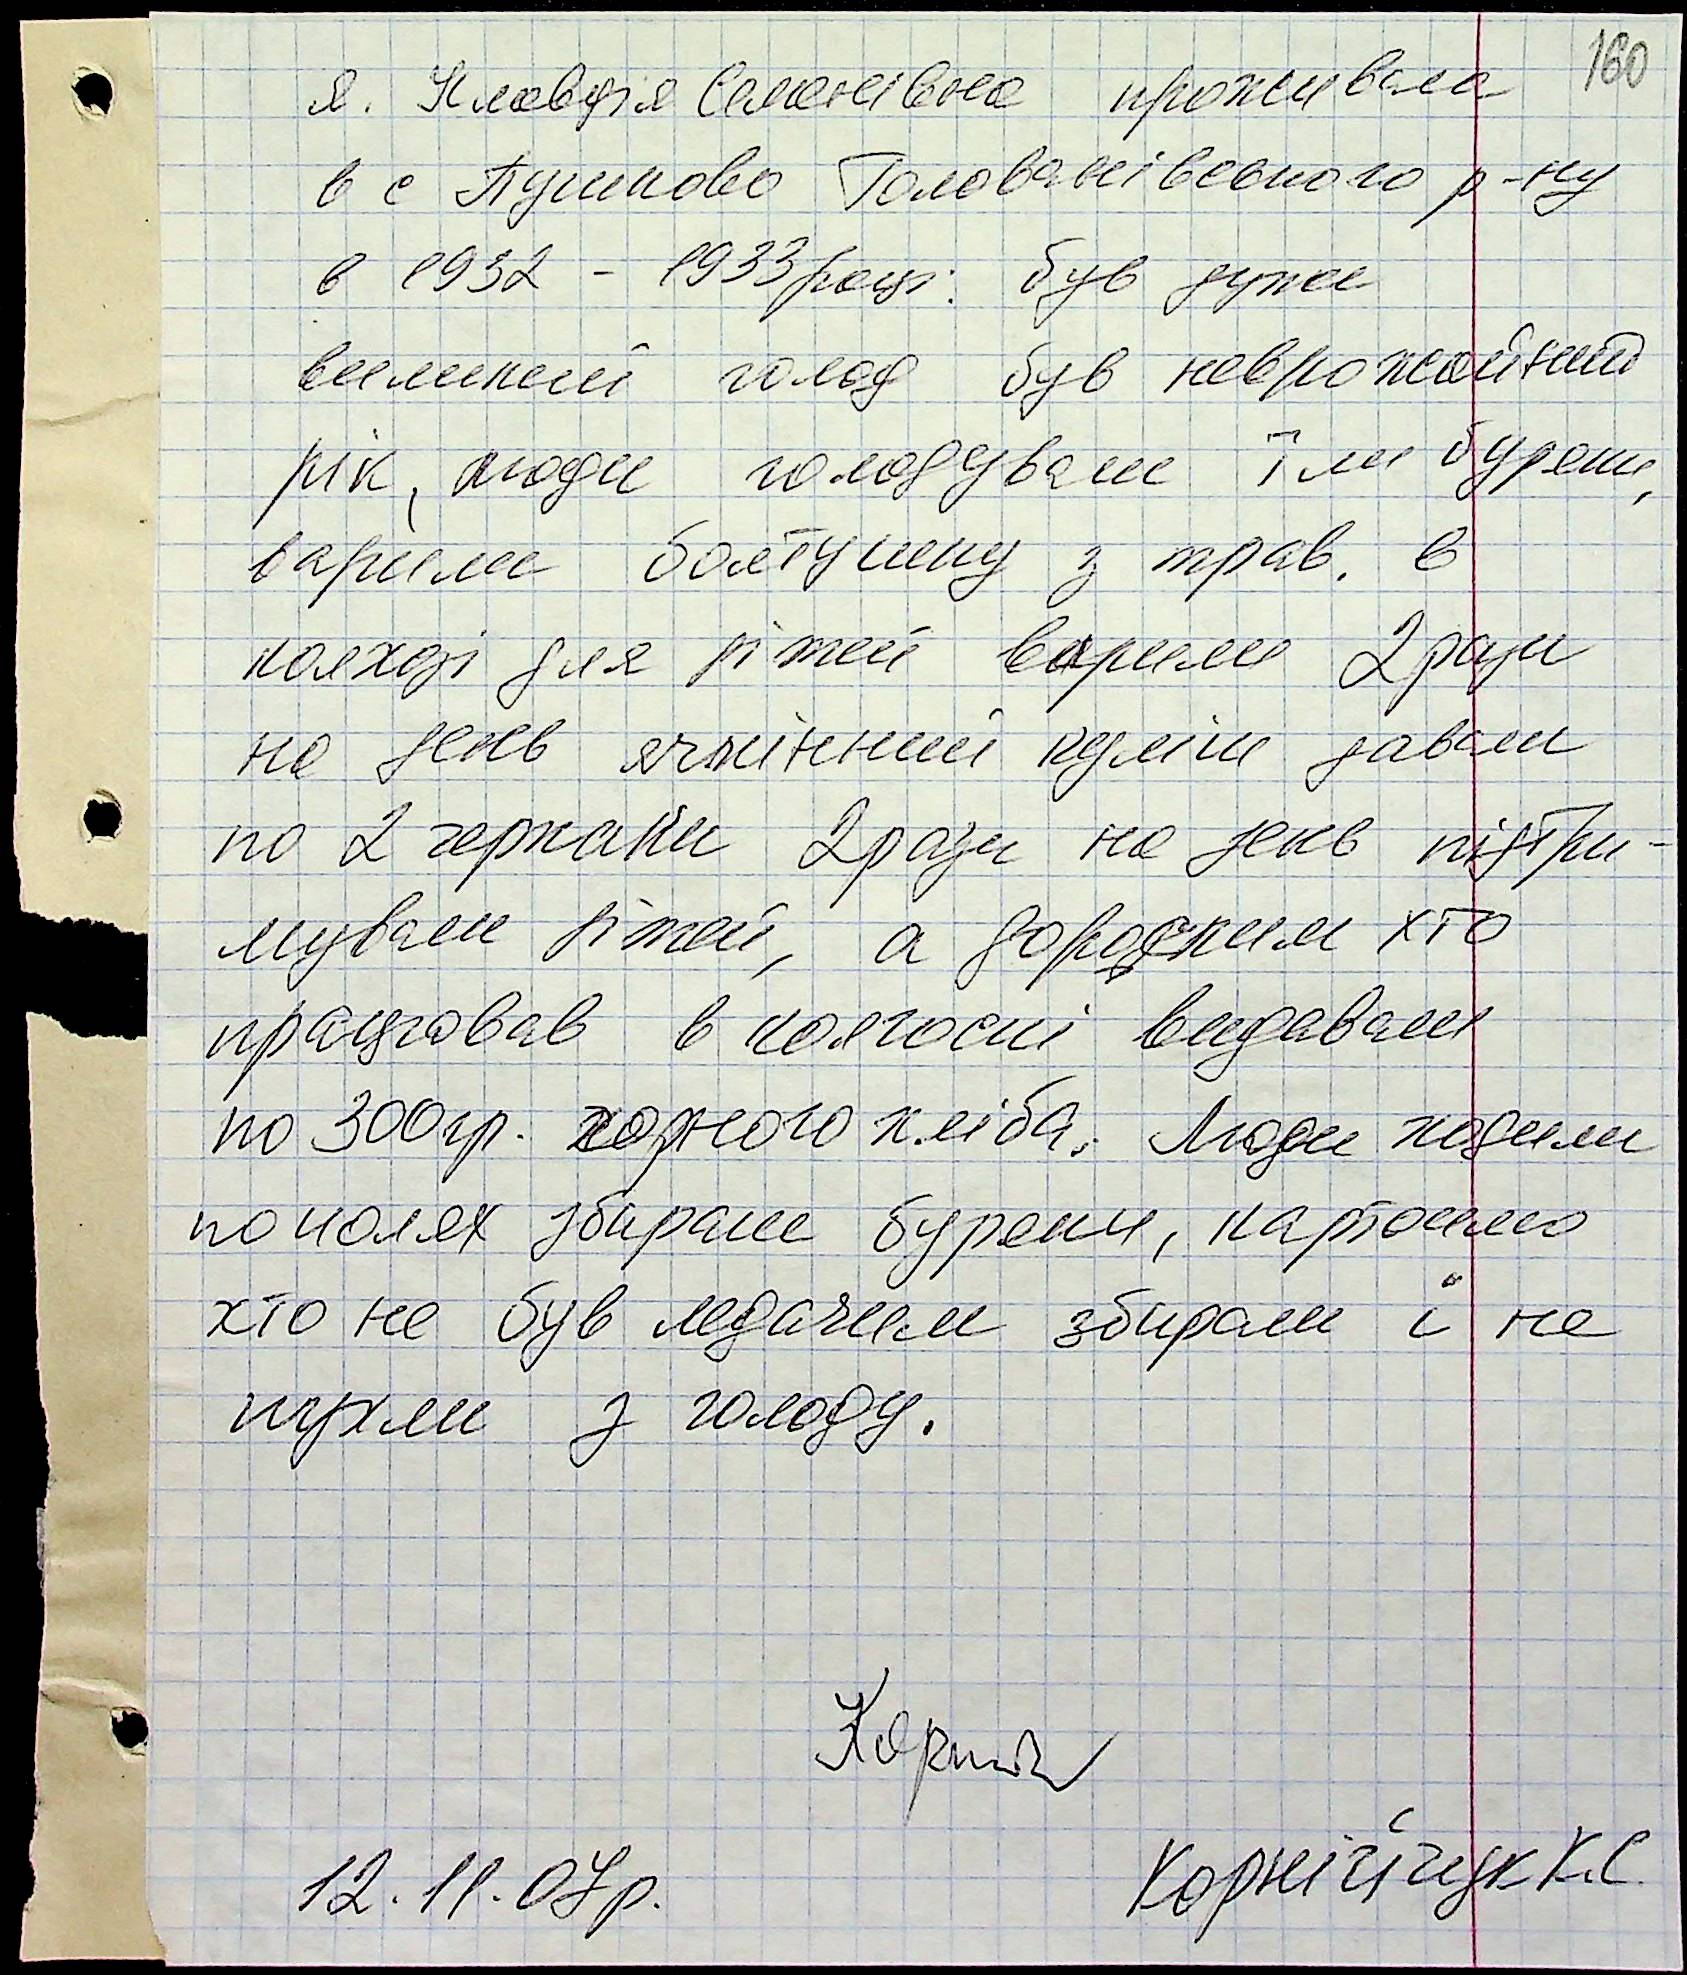 160
я. Клавдія Семенівна проживала
в с Пушково Голованівського р-ну
в 1932 - 1933 році. був дуже
великий голод був неврожайний
рік, люди голодували їли буряки,
варили болтушку з трав. в
колхозі для дітей варили 2 рази
на день ячмінний куліш давали
по 2 черпаки 2 рази на день підтри-
мували дітей, а дорослим хто
працював в колгоспі видавали
по 300 гр. чорного хліба. Люди ходили
по полях збирали буряки, картоплю
хто не був ледачим збирали і не
пухли з голоду.
12.11.07р.
Корнійчук К.С.